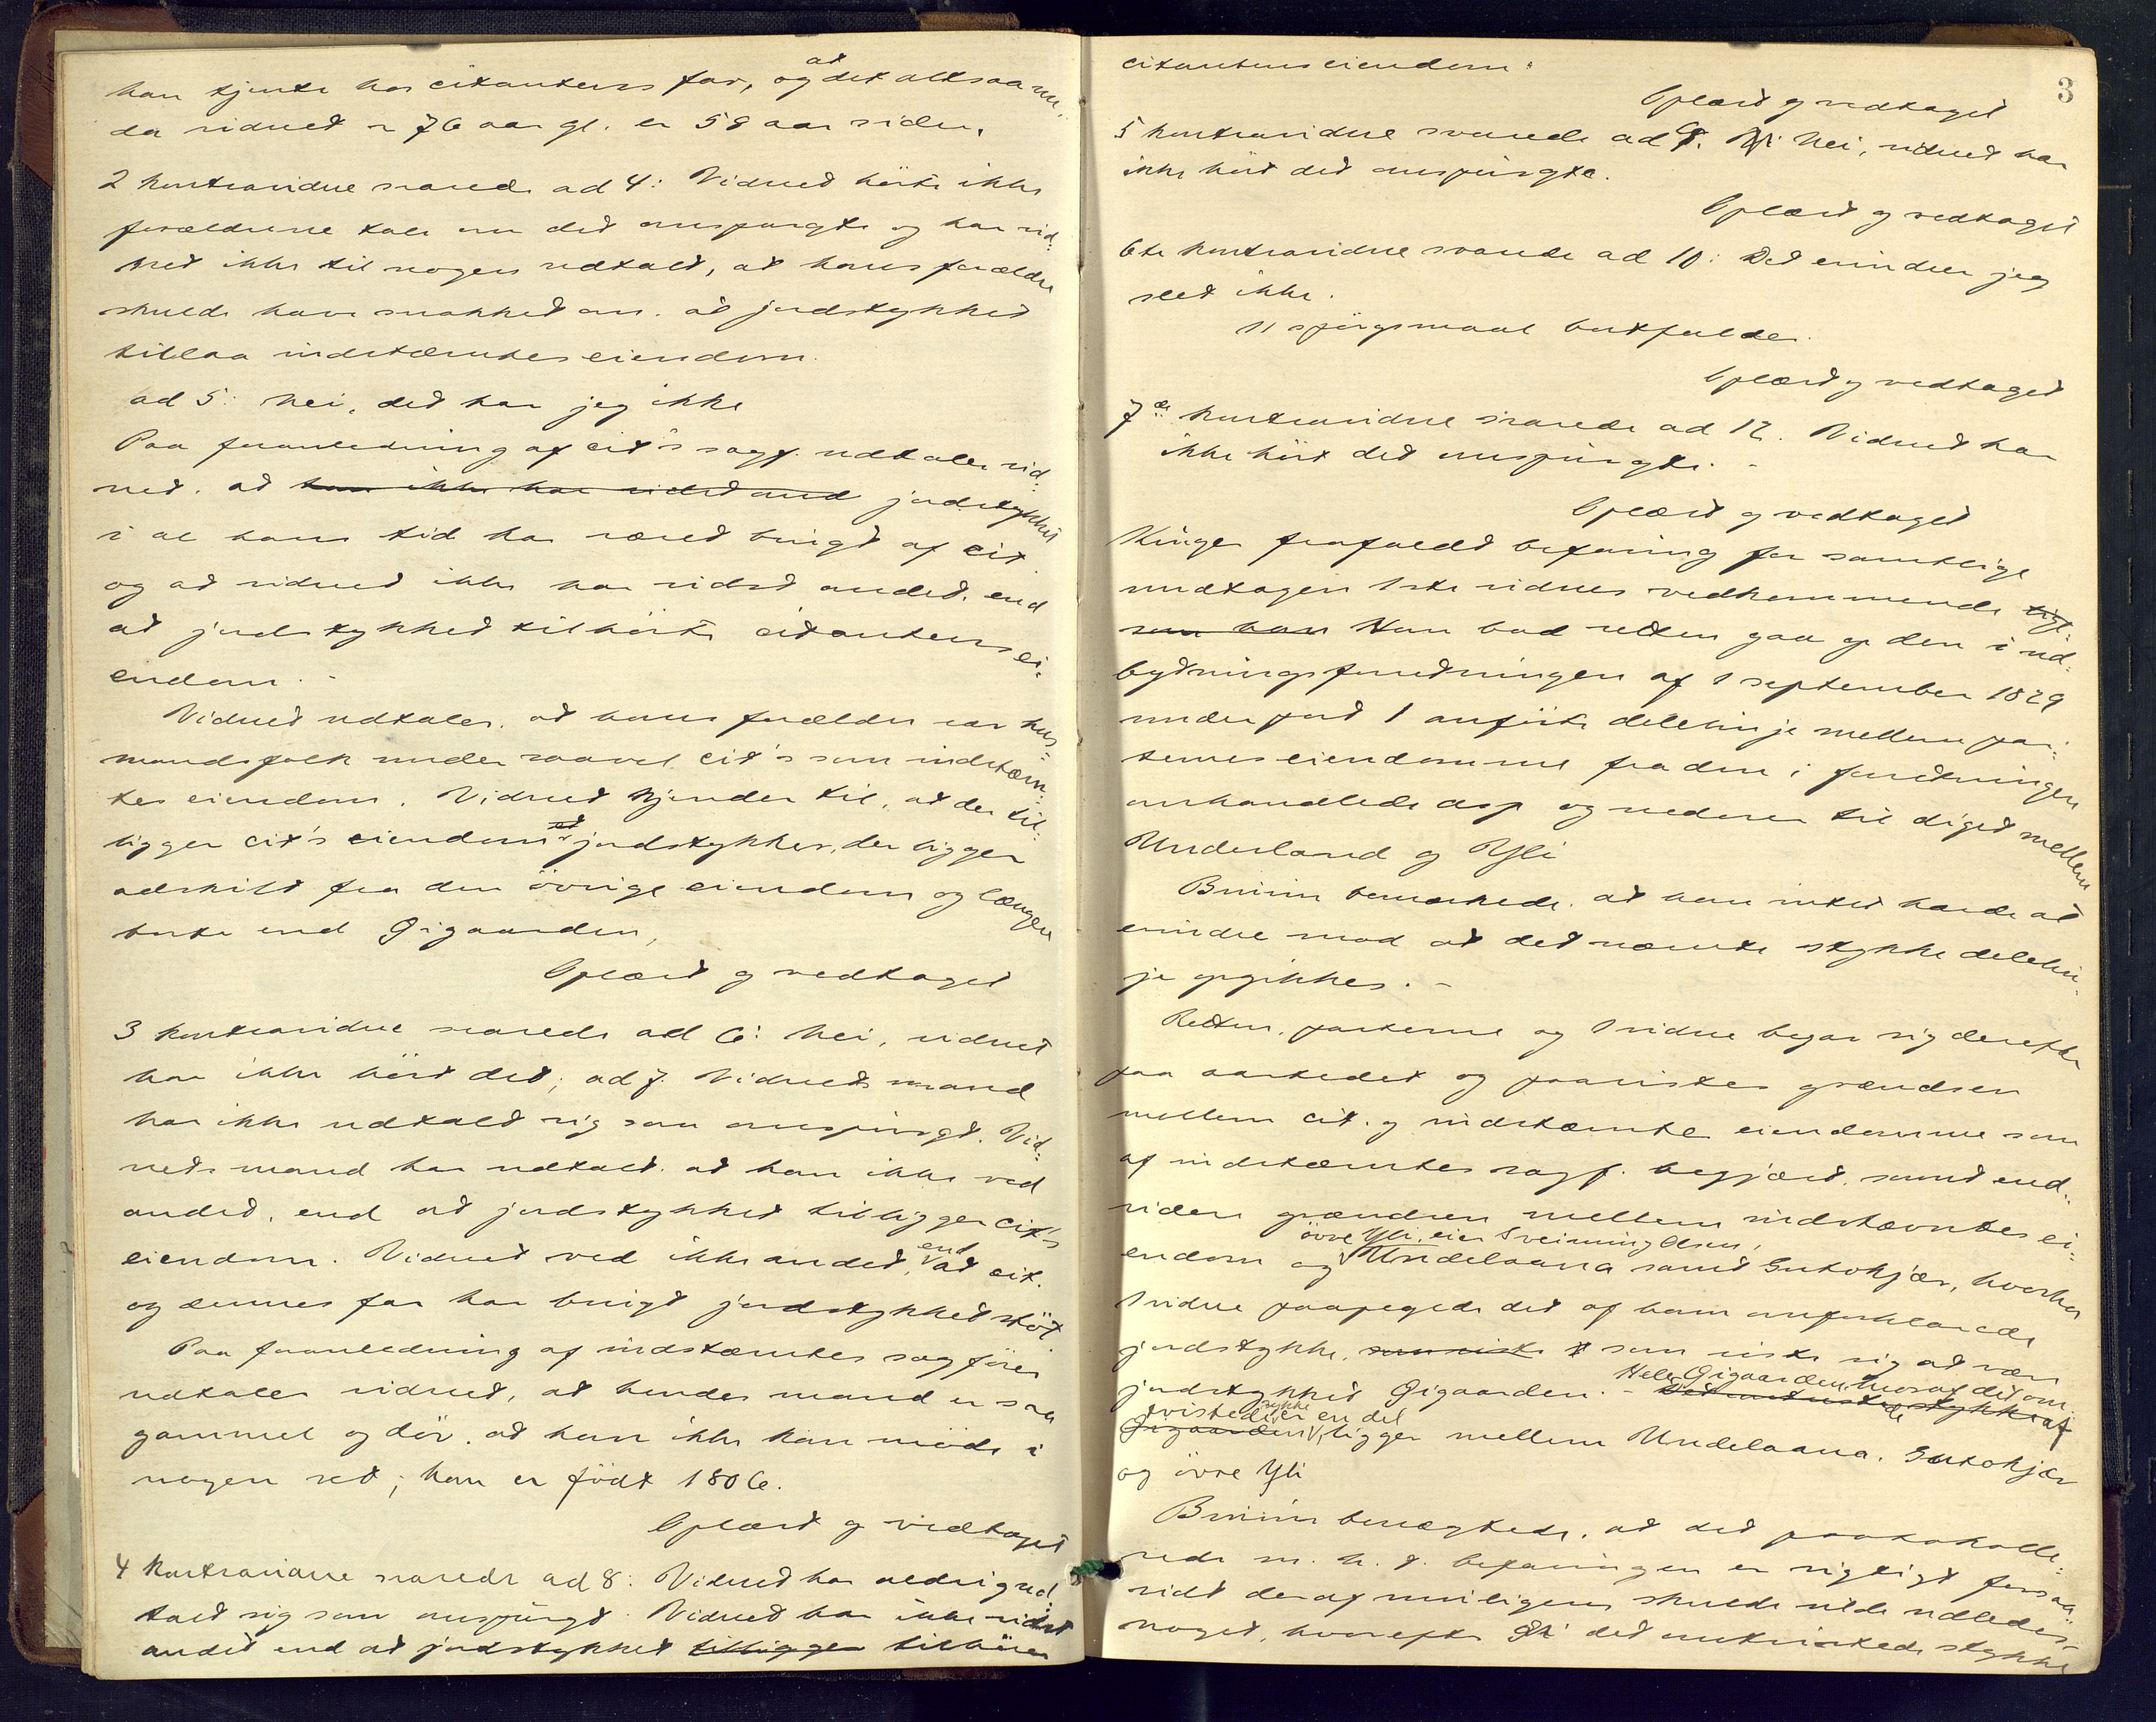 han tjente hos citantens far, og at det altsaa nu,
da vidnet er 76 aar gl. er 58 aar siden.
2 kontravidne svarede ad 4: Vidnet hørte ikke
forældrene tale om det omspurgte og har vid-
net ikke til nogen udtalt, at hans forældre
skulde have snakket om at jordstykket
tillaa indstævntes eiendom.
ad 5: Nei, det har jeg ikke
Paa foranledning af cit's sagf. udtaler vid-
net, at han ikke har vidst and jordstykket
i al hans tid har været brugt af cit.
og at vidnet ikke har vidst andet, end
at jordstykket tilhørte citantens ei-
endom. -
Vidnet udtaler, at hans forældre var hus-
mandsfolk under saavel cit's som indstævn-
tes eiendom. Vidnet kjender til, at der til-
ligger cit's eiendom et jordstykker, der ligger
adskilt fra den øvrige eiendom og længer
borte end Gigaarden,
Oplæst og vedtaget
3 kontravidne svarede ad 6: Nei, vidnet
har ikke hørt det; ad 7. Vidnets mand
har ikke udtalt sig som omspurgt. Vid-
nets mand har udtalt, at han ikke ved
andet, end at jordstykket tilligger cit's
eiendom. Vidnet ved ikke andet, end at cit.
og dennes far har brugt jordstykket støt
Paa foranledning af indstævntes sagfører
udtaler vidnet, at hendes mand er saa
gammel og døv, at han ikke kan møde i
nogen ret; han er født 1806.
Oplæst og vedtaget
4 Kontravidne svarede ad 8: Vidnet har aldrig ud-
talt sig som omspurgt. Vidnet har ikke vidst
andet end at jordstykket tilligger tilhører
citantens eiendom.
3
Oplæst og vedtaget
5 kontravidne svarede ad 9. Nei, vidnet har
ikke hørt det omspurgte.
Oplæst og vedtaget
6te kontravidne svarede ad 10: Det erindrer jeg
slet ikke.
11 spørgsmaal bortfalder.
Oplæst og vedtaget
7de kontravidne svarede ad 12. Vidnet har
ikke hørt det omspurgte. -
Oplæst og vedtaget
Kinge frafaldt befaring for samtlige
undtagen 1ste vidnes vedkommende
som han Han bad retten gaa op den i ud-
bytningsforretningen af 1 september 1829
under post 1 anførte delelinje mellem par-
ternes eiendomme fra den i forretningen
omhandlede asp og nedover til diget mellem
Underland og Yli
Bruun bemærkede, at han intet havde at
erindre mod at det nævnte stykke delelin-
je opgikkes. -
Retten, parterne og 1 vidne begav sig derefter
paa aastedet og paavistes grændsen
mellem cit. og indstævnte eiendomme som
af indstævntes sagf. begjært, samt end-
videre grændsen mellem indstævntes ei-
endom og øvre Yli, eier Sveinung Olsen, Undelaana samt Gutokjær, hvorhos
1 vidne paapegede det af ham omforklarede
jordstykke, som viste sig at være
jordstykket Gigaarden. - Hele Gigaarden, hvoraf det om-
tvistede stykke er en del Gigaarden, ligger mellem Undelaana, Gutokjær
og øvre Yli
Bruun benægtede, at det protokolle-
rede m. h. t. befaringen er rigtigt forsaa-
vidt deraf muligens skulde ville udledes
noget, hvorefter det omtvistede stykke